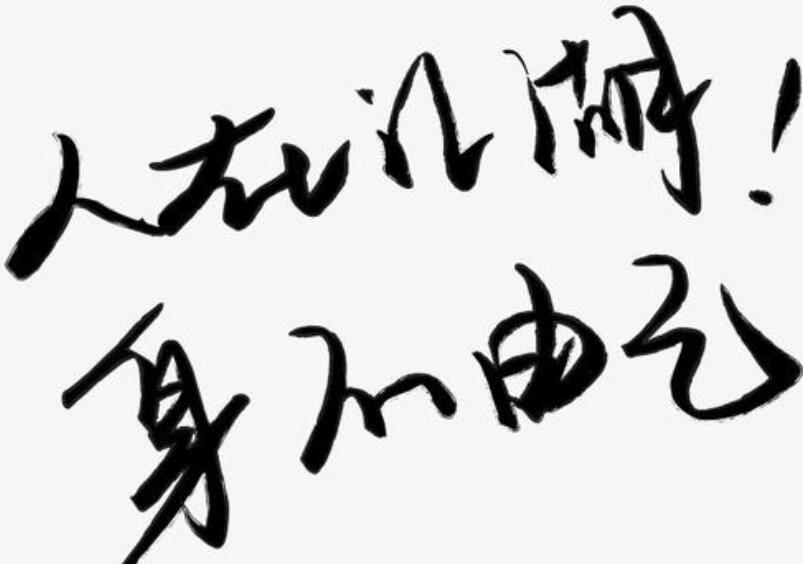 人在江湖！
身不由己